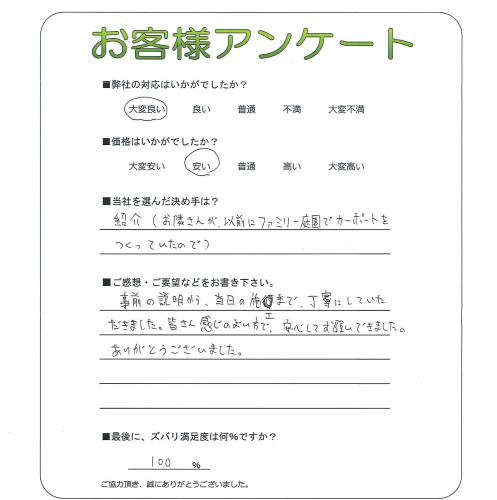 お客様アンケート
■弊社の対応はいかがでしたか？
大変良い 良い 普通 不満 大変不満
■価格はいかがでしたか？
大変安い 安い 普通 高い 大変高い
■当社を選んだ決め手は？
紹介（お隣さんが、以前にファミリー庭園でカーポートを
つくっていたので）
■ご感想・ご要望などをお書き下さい。
事前の説明から、当日の施工まで、丁寧にしていた
だきました。皆さん感じのよい方で、安心してお願いできました。
ありがとうございました。
■最後に、ズバリ満足度は何％ですか？
100 ％
ご協力頂き、誠にありがとうございました。